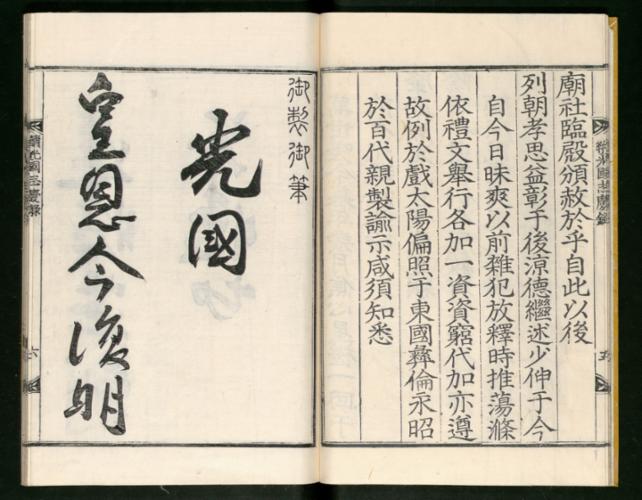 廟社臨殿頒赦於乎自此以後
列朝孝思益彰于後涼德繼述少伸于今
自今日昧爽以前雜犯放釋時推蕩滌
依禮文舉行各加一資資窮代加亦遵
故例於戲太陽偏照于東國彝倫永昭
於百代親製諭示咸須知悉
續光國志慶錄
五
御製御筆
光國
皇恩今復明
續光國志慶錄
六